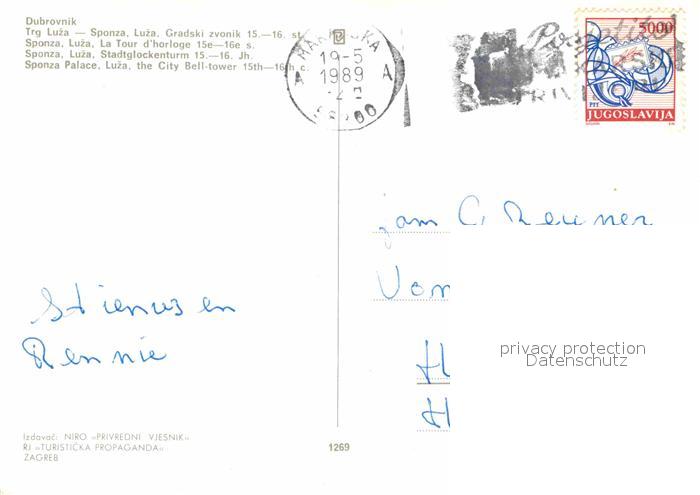 Dubrovnik
Trg Luža — Sponza, Luža, Gradski zvonik 15.—16. st
Sponza, Luža, La Tour d'horloge 15e—16e s.
Sponza, Luža, Stadtglockenturm 15.—16. Jh.
Sponza Palace, Luža, the City Bell-tower 15th—16th c.
19-5
1989
A
5000
PTT
JUGOSLAVIJA
Von
H
H
en
Rennie
privacy protection
Datenschutz
Izdavač: NIRO »PRIVREDNI VJESNIK«
RJ »TURISTIČKA PROPAGANDA«
ZAGREB
1269